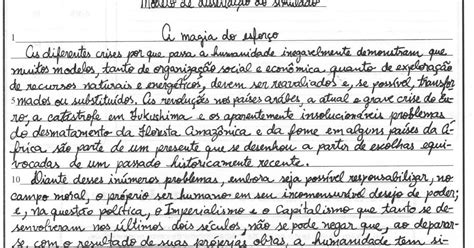 Modelo de dissertação do simulado
1 A magia do esforço
As diferentes crises por que passa a humanidade inegavelmente demonstram que
muitos modelos, tanto de organização social e econômica quanto de exploração
de recursos naturais e energéticos, devem ser reavaliados e, se possível, transfor
5 mados ou substituídos. As revoluções nos países árabes, a atual e grave crise do Eu-
ro, a catástrofe em Fukushima e os aparentemente insolucionáveis problemas
do desmatamento da Floresta Amazônica e da fome em alguns países da Á-
frica são parte de um presente que se desenhou a partir de escolhas equi-
vocadas de um passado historicamente recente.
10 Diante desses inúmeros problemas, embora seja possível responsabilizar, no
campo moral, o próprio ser humano em seu incomensurável desejo de poder;
e, na questão política, o Imperialismo e o Capitalismo que tanto se de-
senvolveram nos últimos dois séculos, não se pode negar que, ao deparar-
se, com o resultado de suas próprias obras, a humanidade tem si-